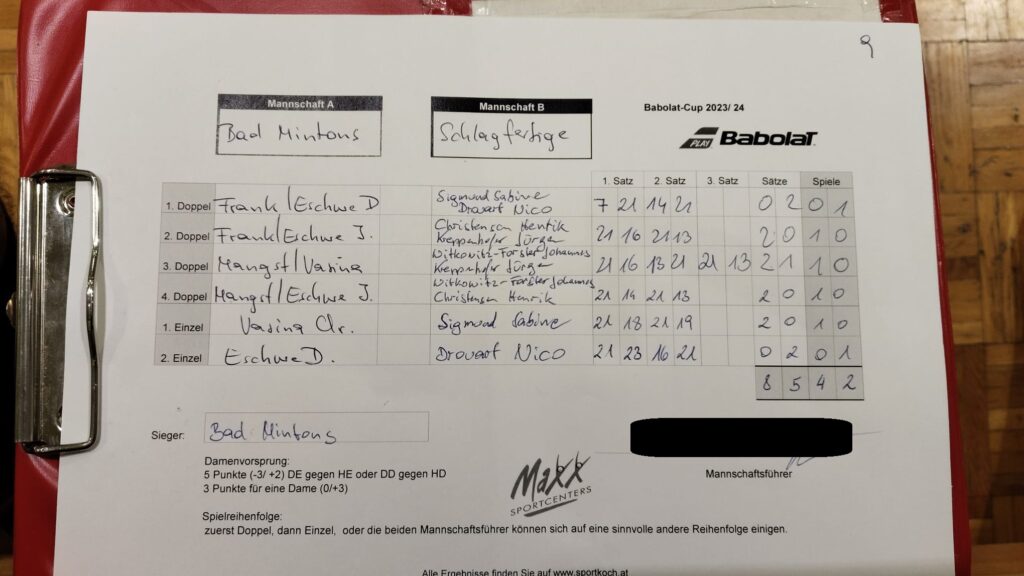 9
Mannschaft A
Bad Mintons
Mannschaft B
Schlagfertige
Babolat-Cup 2023/ 24
PLAY Babolat
1. Satz 2. Satz 3. Satz Sätze Spiele
1. Doppel Frank/Eschwe D Sigmund Sabine 7 21 14 21 0 2 0 1
Drouart Nico
2. Doppel Frank/Eschwe J. Christensen Henrik 21 16 21 13 2 0 1 0
Kreppenhofer Jürgen
3. Doppel Mangst/Vasina Witkowitz-Forster Johannes 21 16 13 21 21 13 2 1 1 0
Kreppenhofer Jürgen
4. Doppel Mangst/Eschwe J. Witkowitz-Forster Johannes 21 14 21 13 2 0 1 0
Christensen Henrik
1. Einzel Vasina Chr. Sigmund Sabine 21 18 21 19 2 0 1 0
2. Einzel Eschwe D. Drouart Nico 21 23 16 21 0 2 0 1
8 5 4 2
Sieger: Bad Mintons
Mannschaftsführer
Damenvorsprung:
5 Punkte (-3/ +2) DE gegen HE oder DD gegen HD
3 Punkte für eine Dame (0/+3)
MaXX
SPORTCENTERS
Spielreihenfolge:
zuerst Doppel, dann Einzel, oder die beiden Mannschaftsführer können sich auf eine sinnvolle andere Reihenfolge einigen.
Alle Ergebnisse finden Sie auf www.sportkoch.at